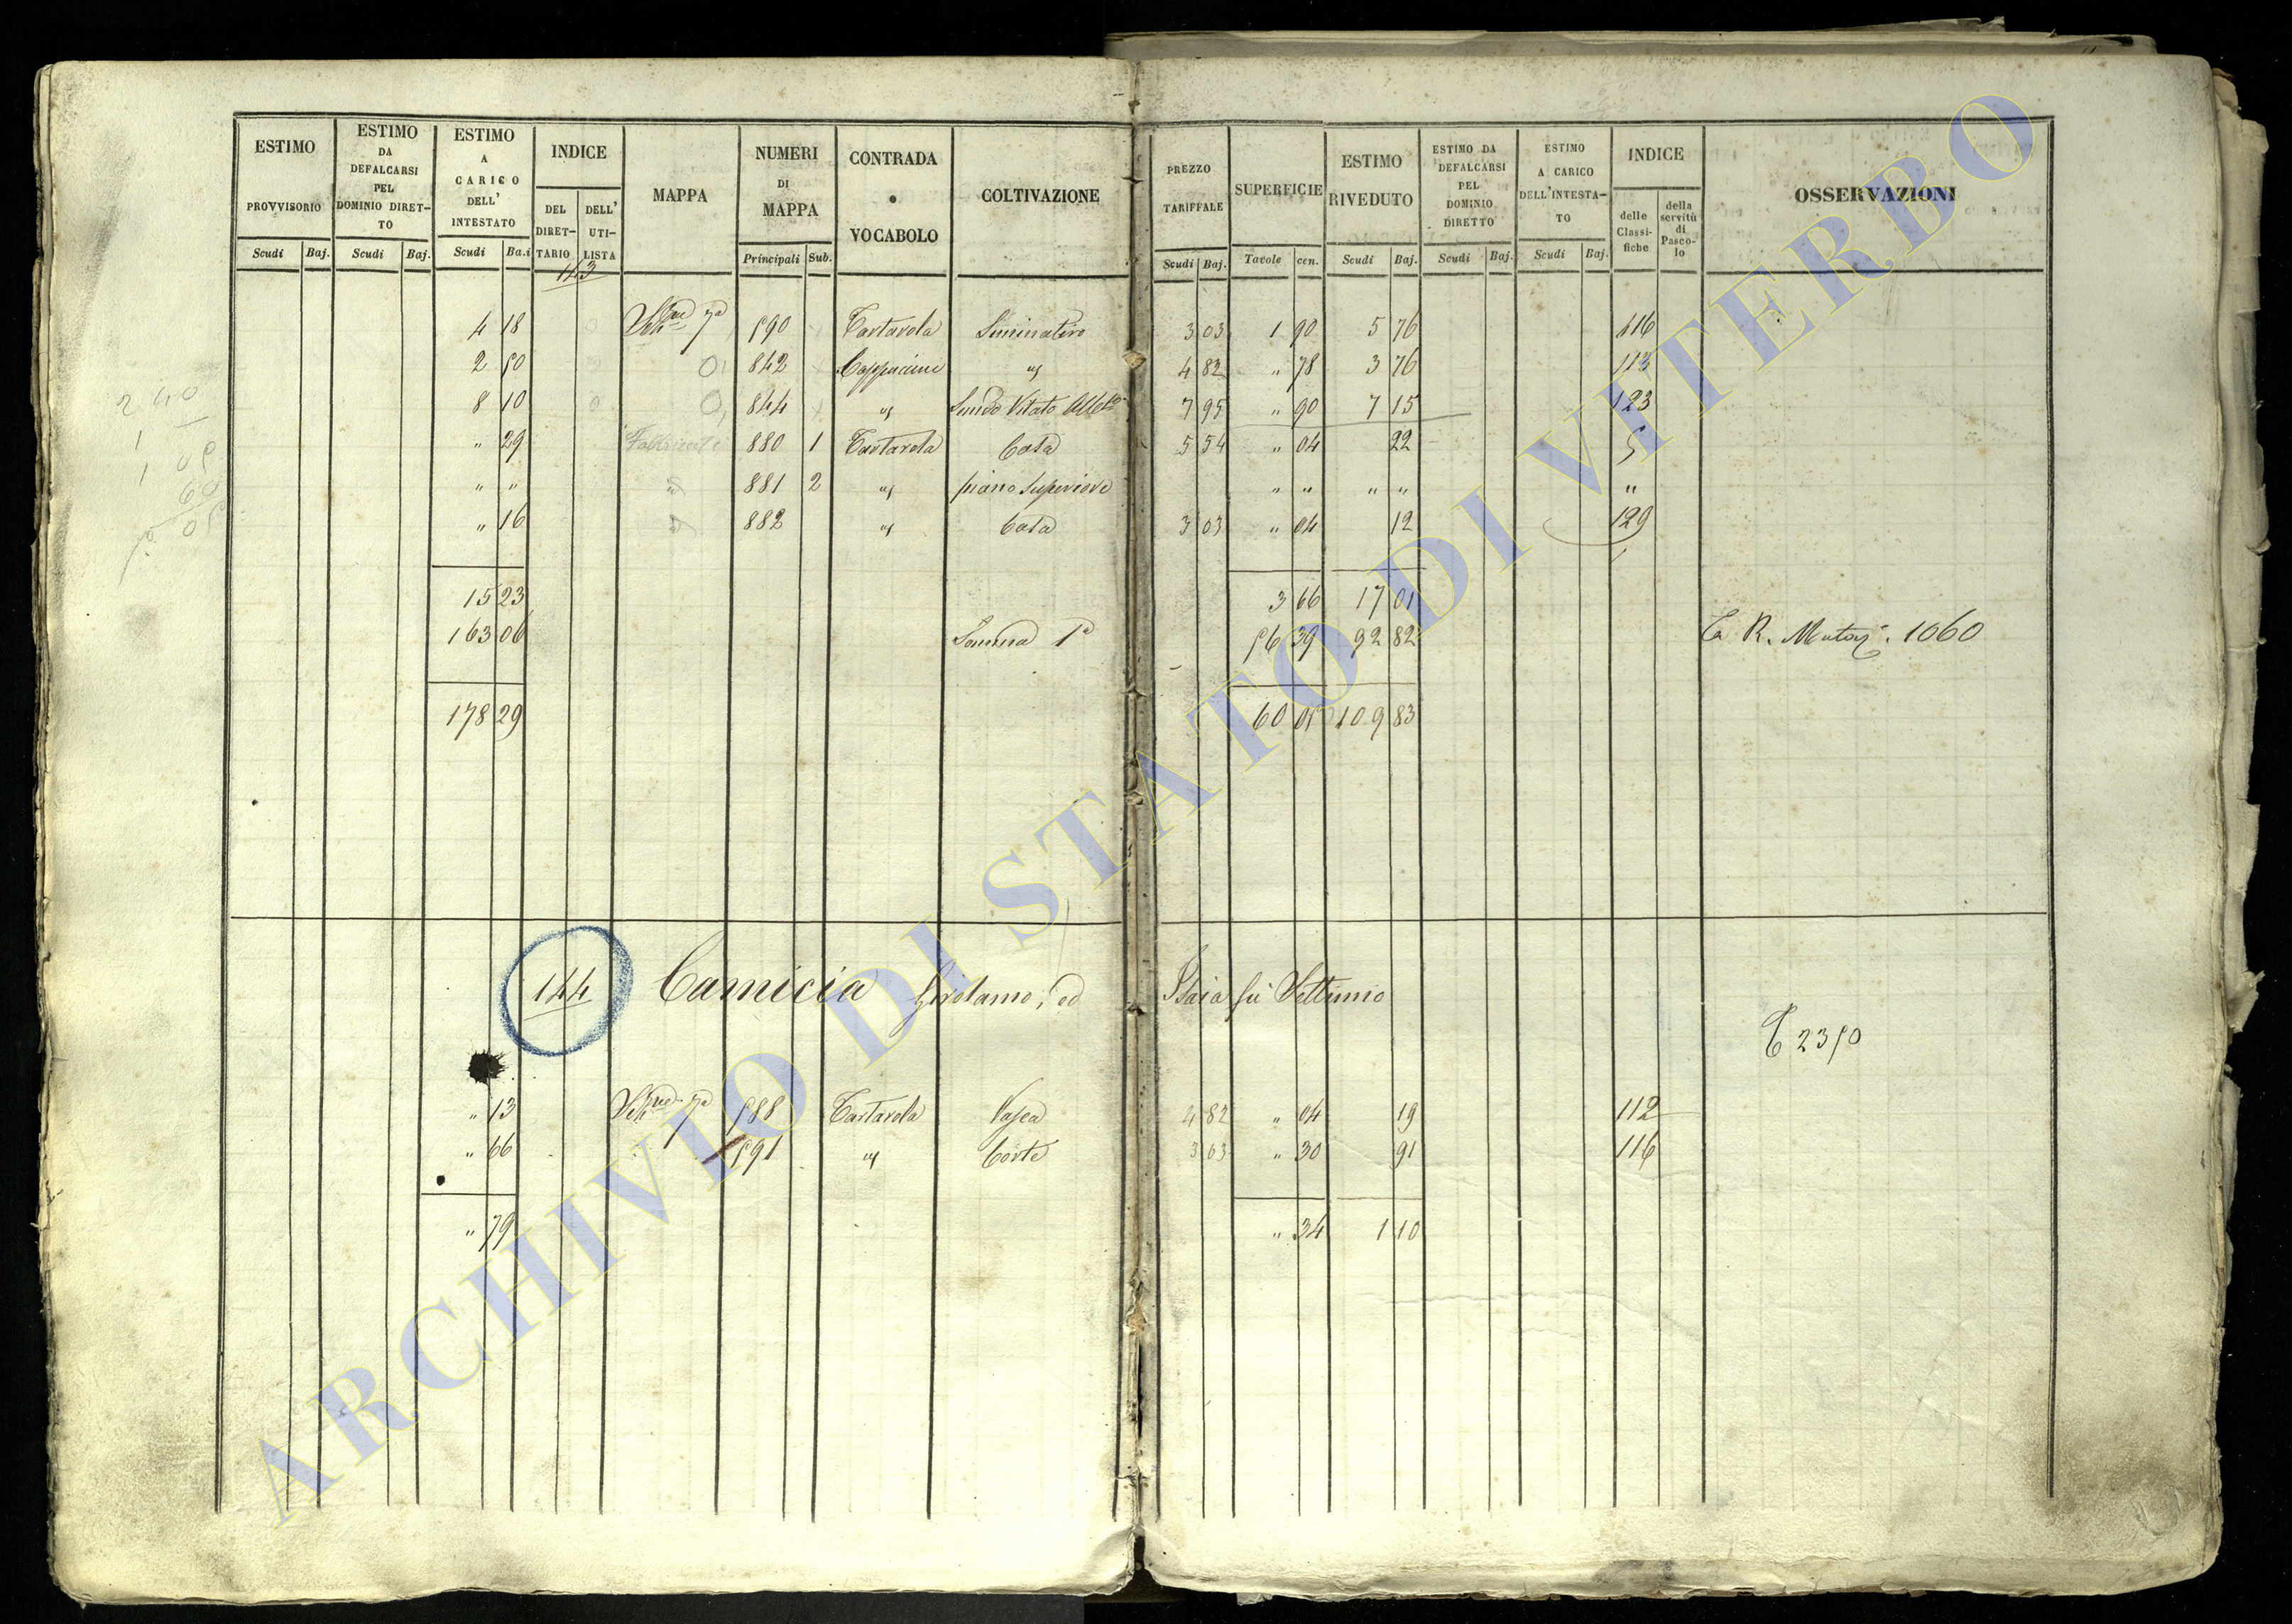 ESTIMO PROVVISORIO Scudi Baj.
ESTIMO DA DEFALCARSI PEL DOMINIO DIRET-TO Scudi Baj.
ESTIMO A CARICO DELL' INTESTATO Scudi Ba.i
INDICE DEL DIRET-TARIO DELL' UTI-LISTA
MAPPA
NUMERI DI MAPPA Principali Sub.
CONTRADA o VOCABOLO
COLTIVAZIONE
PREZZO TARIFFALE Scudi Baj.
SUPERFICIE Tavole cen.
ESTIMO RIVEDUTO Scudi Baj.
ESTIMO DA DEFALCARSI PEL DOMINIO DIRETTO Scudi Baj.
ESTIMO A CARICO DELL'INTESTA-TO Scudi Baj.
INDICE delle Classi-fiche della servitù di Pasco-lo
OSSERVAZIONI
143
4 18 7a 590 Tartarola Siminativo 3 03 1 90 5 76 116
2 50 842 Cappuccini " 4 82 " 78 3 76 113
8 10 844 " Vitato 7 95 " 90 7 15 123
" 29 880 1 Tartarola Casa 5 54 " 04 22 5
" " " 881 2 " piano Superiore " " " " "
" 16 " 882 " Casa 3 03 " 04 12 129
15 23 3 66 17 01
163 06 Somma 1a 56 39 92 82 R. Mutaz. 1060
178 29 60 05 109 83
144 Camicia Girolamo, ed Isaia fu Settimio
2350
" 13 7a 588 Tartarola 4 82 " 04 19 112
" 66 591 " Corte 3 03 " 30 91 116
" 79 " 34 1 10
ARCHIVIO DI STATO DI VITERBO